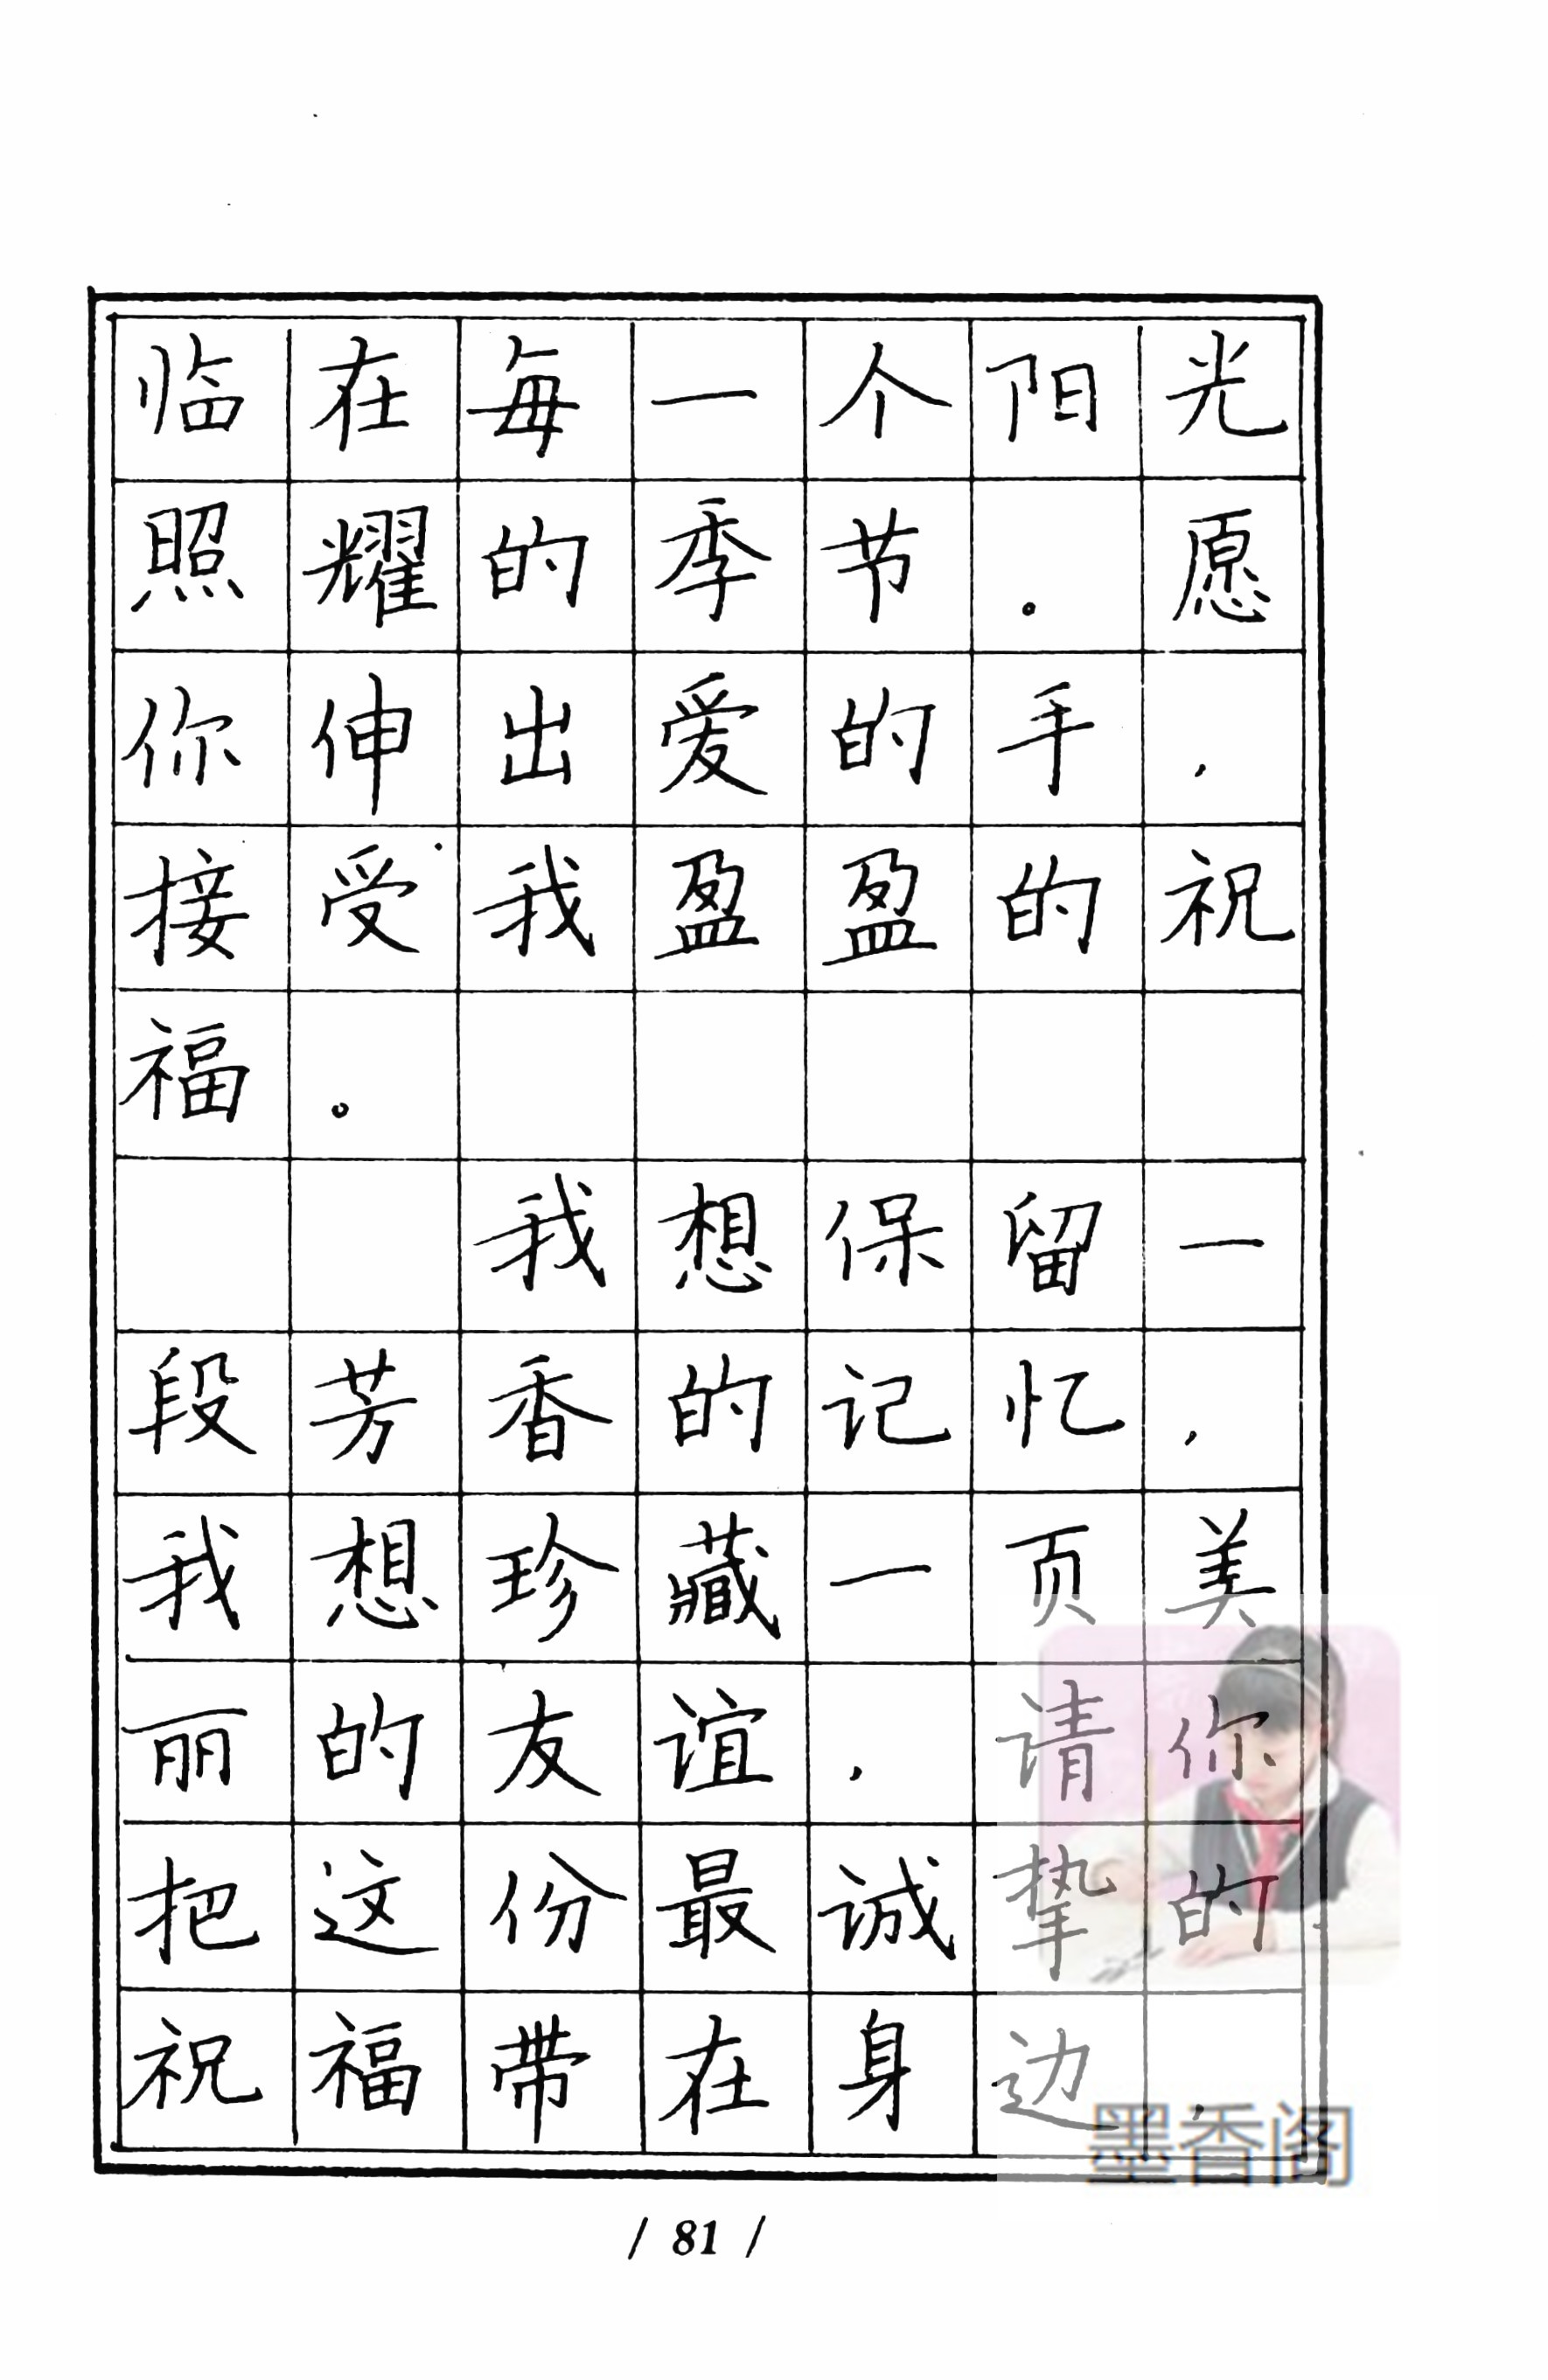 临在每一个阳光
照耀的季节。愿
你伸出爱的手,
接受我盈盈的祝
福。
我想保留一
段芳香的记忆,
我想珍藏一页美
丽的友谊,请你
把这份最诚挚的
祝福带在身边,
墨香阁
/ 81 /